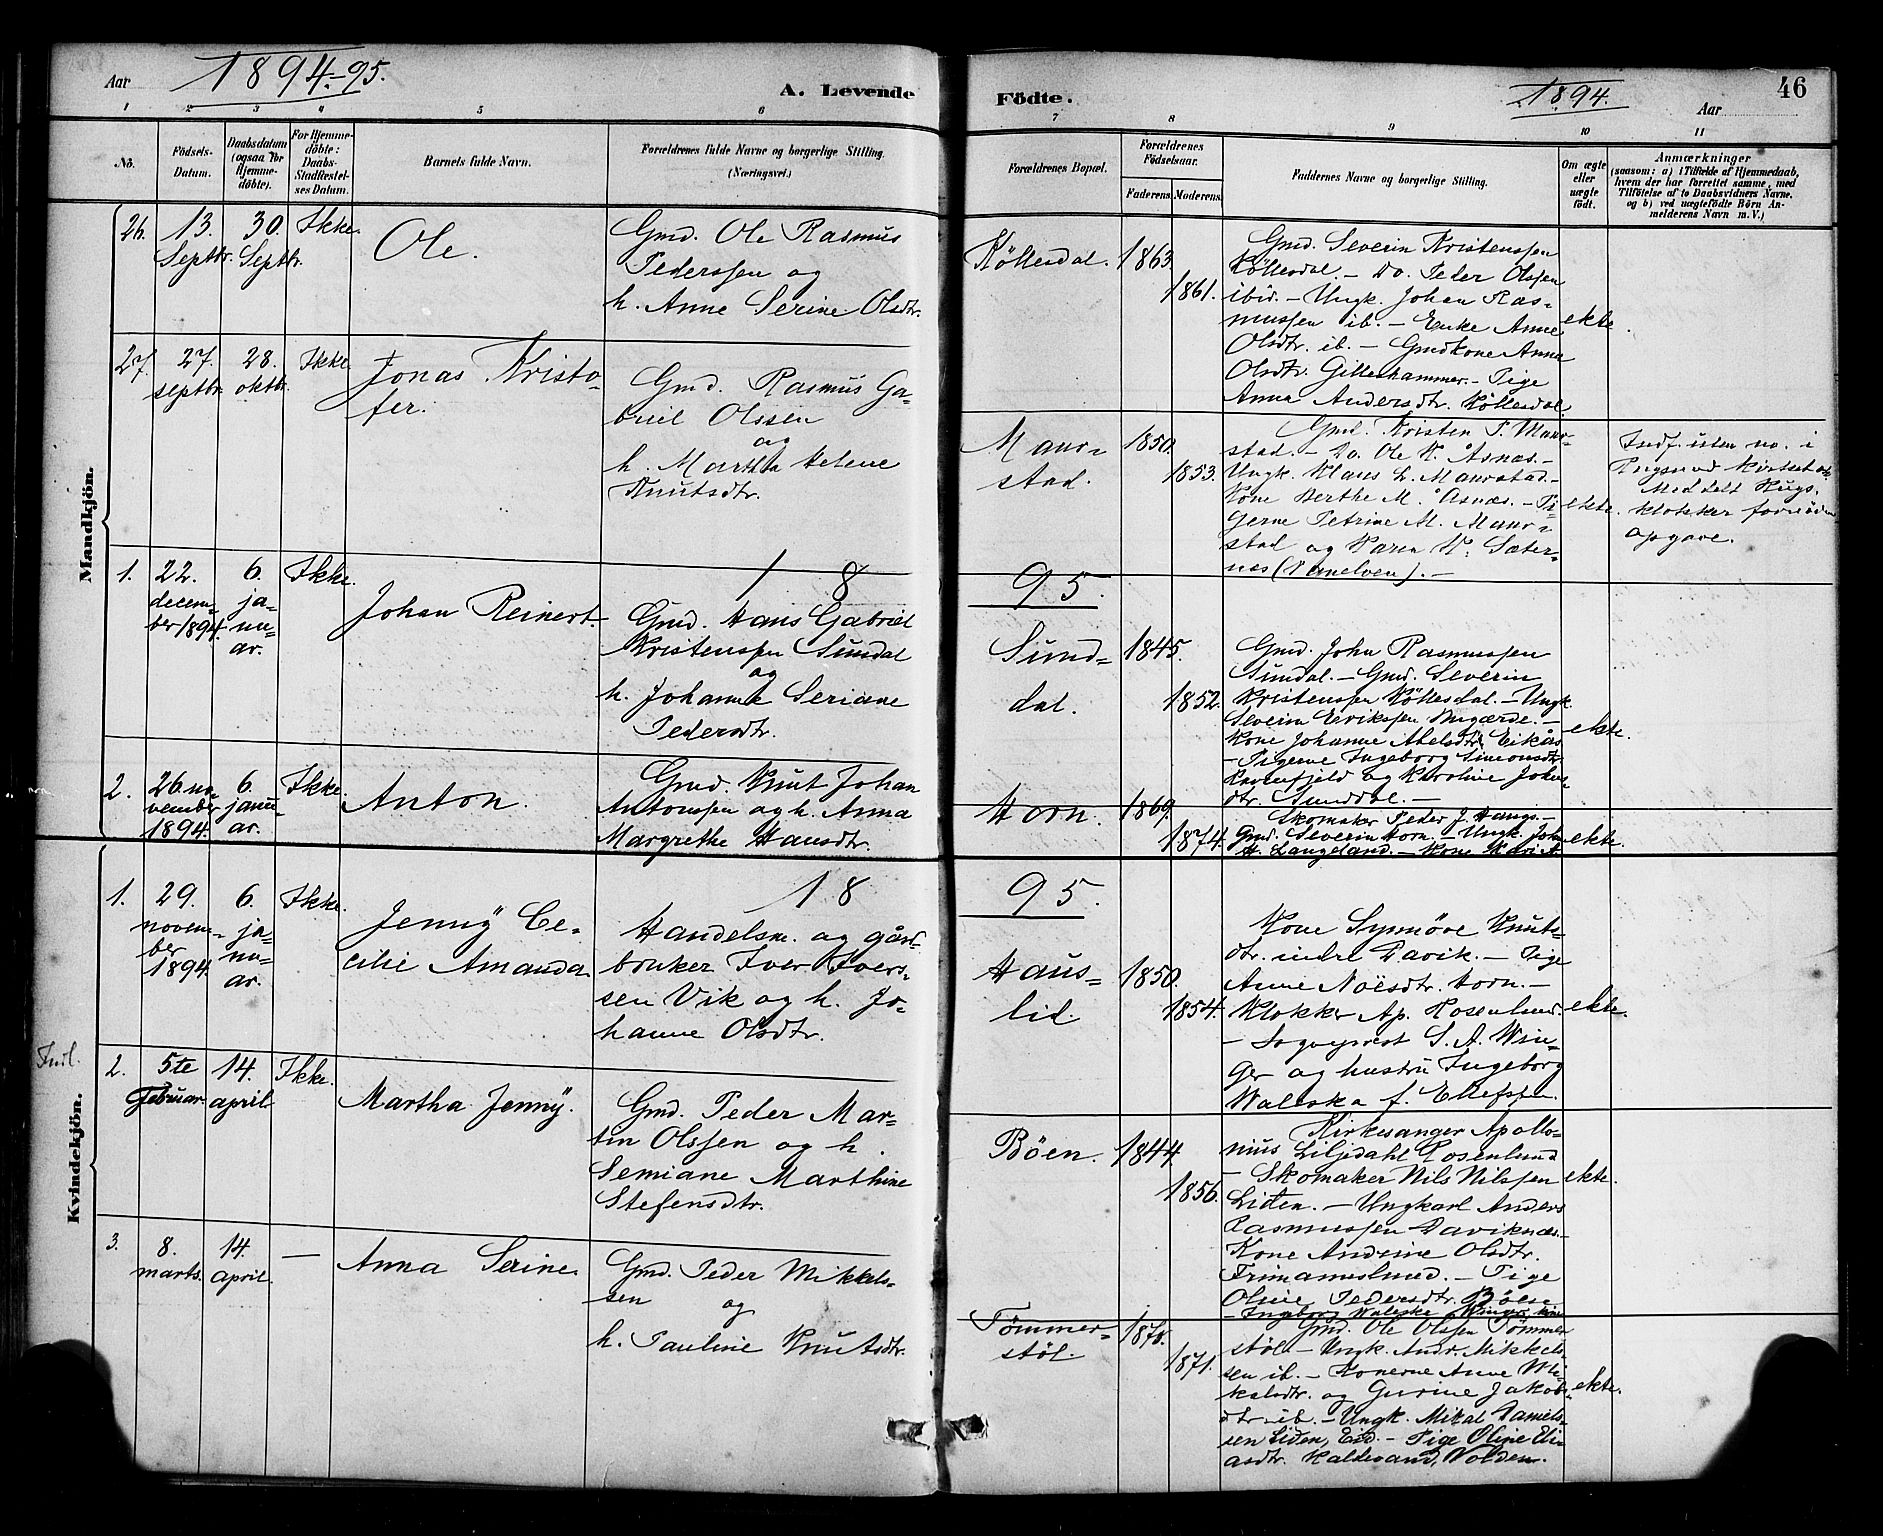 Aar 1894.-95.
A. Levende
Födte.
1894.
Aar
46
1 2 3 4 5 6
7 8 9 10 11
No.
Fødsels-
Datum.
Daabsdatum
(ogsaa for
Hjemme-
döbte).
For Hjemme-
döbte:
Daabs-
Stadfæstel-
ses Datum.
Barnets fulde Navn.
Forældrenes fulde Navne og borgerlige Stilling.
(Næringsvei.)
Forældrenes Bopæl.
Forældrenes
Födselsaar.
Faderens. Moderens.
Faddernes Navne og borgerlige Stilling.
Om ægte
eller
uægte
födt.
Anmærkninger
(saasom: a) i Tilfælde af Hjemmedaab,
hvem der har forrettet samme, med
Tilföielse af to Daabsvidners Navne,
og b) ved uægtefödte Börn An-
melderens Navn m. V.)
Mandkjön.
26.
13.
Septbr.
30.
Septbr.
Ikke.
Ole.
Gmd. Ole Rasmus
Pederssen og
h. Anne Serine Olsdtr.
Köllesdal.
1863.
1861.
Gmd. Severin Kristenssen
Köllesdal. - Do. Peder Olssen
ibid. - Ungk. Johan Ras-
mussen ib. - Enke Anne
Olsdtr. ib. - Gmdkone Anna
Olsdtr. Gilleshammer. - Pige
Anna Andersdtr. Köllesdal.
ekte.
27.
27.
septbr.
28.
oktbr.
Ikke.
Jonas Kristo-
fer.
Gmd. Rasmus Ga-
briel Olssen
og
h. Martha Helene
Knutsdtr.
Maur-
stad.
1850.
1853.
Gmd. Kristen P. Maur-
stad. - Do. Ole K. Åsnæs. -
Ungk. Klaus L. Maurstad. -
Kone Berthe M. Åsnæs. - Pi-
gerne Petrine M. Maur-
stad og Karen K. Sæter-
nes
ekte.
Indf. uten no. i
Meddelt
klokker fornöden
opgave.
1 8
95.
1.
22.
decem-
ber 1894.
6.
ja-
nu-
ar.
Ikke.
Johan Reinert.
Gmd. Hans Gabriel
Kristenssen Sundal
og
h. Johanne Seriane
Pedersdtr.
Sund-
dal.
1845.
1852.
Gmd. John Rasmussen
Sundal. - Gmd. Severin
Kristenssen Köllesdal. - Ungk.
Severin Erikssen Nygærde. -
Kone Johanne Abelsdtr. Eikås
- Pigerne Ingeborg Simonsdtr.
Ravnfjeld og Karoline Johns-
dtr. Sunddal. -
ekte.
2.
26. no-
vember
1894.
6.
janu-
ar.
Ikke.
Anton.
Gmd. Knut Johan
Antonssen og h. Anna
Margrethe Hansdtr.
Horn.
1869.
1874.
Skomaker Peder J. Haugs. -
Gmd. Severin Horn. - Ungk. John
H. Langeland. - Kone Kari A.
ekte.
Kvindekjön.
1 8
95.
1.
29.
novem-
ber
1894.
6.
ja-
nu-
ar.
Ikke.
Jenny Ce-
cilie Amanda.
Handelsm. og gård-
bruker Iver Ivers-
sen Vik og h. Jo-
hanne Olsdtr.
Haus-
lid.
1850.
1854.
Kone Synnöve Knuts-
dtr. indre Davik. - Pige
Anne Nöesdtr. Horn. -
Klokker Ap. Rosenlund.
- Sogneprest S. A. Win-
ger og hustru Ingeborg
Waleska f. Ellefsen.
ekte.
2.
5te
Februar.
14.
april
Ikke.
Martha Jenny.
Gmd. Peder Mar-
tin Olssen og h.
Semiane Marthine
Stefensdtr.
Böen.
1844.
1856.
Kirkesanger Apollo-
nius Liljedahl Rosenlund
- Skomaker Nils Nilssen
Liden. - Ungkarl Anders
Rasmussen Daviknæs. -
Kone Andrine Olsdtr.
- Pige
Oline Pedersdtr. Böen
- Ingeborg Waleska Winger, kone
ekte.
3.
8.
marts.
14.
april.
—
Anna Serine.
Gmd. Peder Mikkels-
sen og
h. Pauline Knutsdtr.
Tömmer-
stöl.
1871.
Gmd. Ole Olssen Tömmer-
stöl. - Ungk. Andr. Mikkels-
sen ib. - Konerne Anne Mi-
kalsdtr. og Gurine Jakobs-
dtr. ib. - Ungk. Mikal Daniels-
sen Liden, Eid. - Pige Oline Eli-
asdtr. Kaldesand, Volden.
ekte.